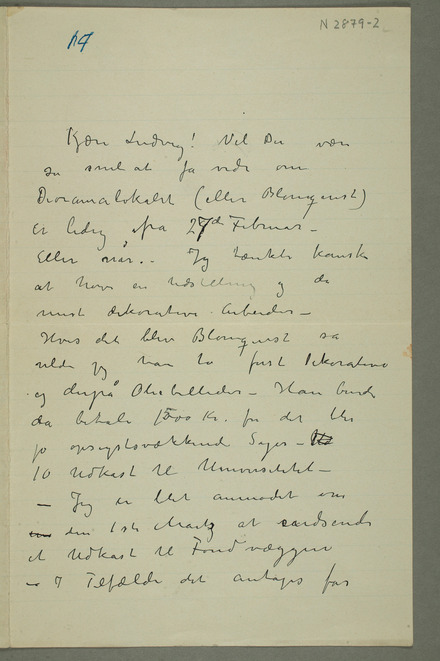 N 2879-2
14
Kjære Ludvig! Vil Du være
så snil at få vide om
Dioramalokalet (eller Blomqvist)
er ledig fra 27de Februar –
Eller når.. Jeg tænkte kanske
at have en udstilling og da
mest dekorative Arbeider –
Hvis det blev Blomqvist så
vilde jeg ha to først Dekorative
og derpå Oliebilleder – Han burde
da betale 1500 Kr. for det blir
jo opsigtsvækkende Sager –
10 Udkast til Universitetet –
– Jeg er blet anmodet om
den 1ste Marts at indsende
et Udkast til Fondvæggen
– I Tilfælde det antages får